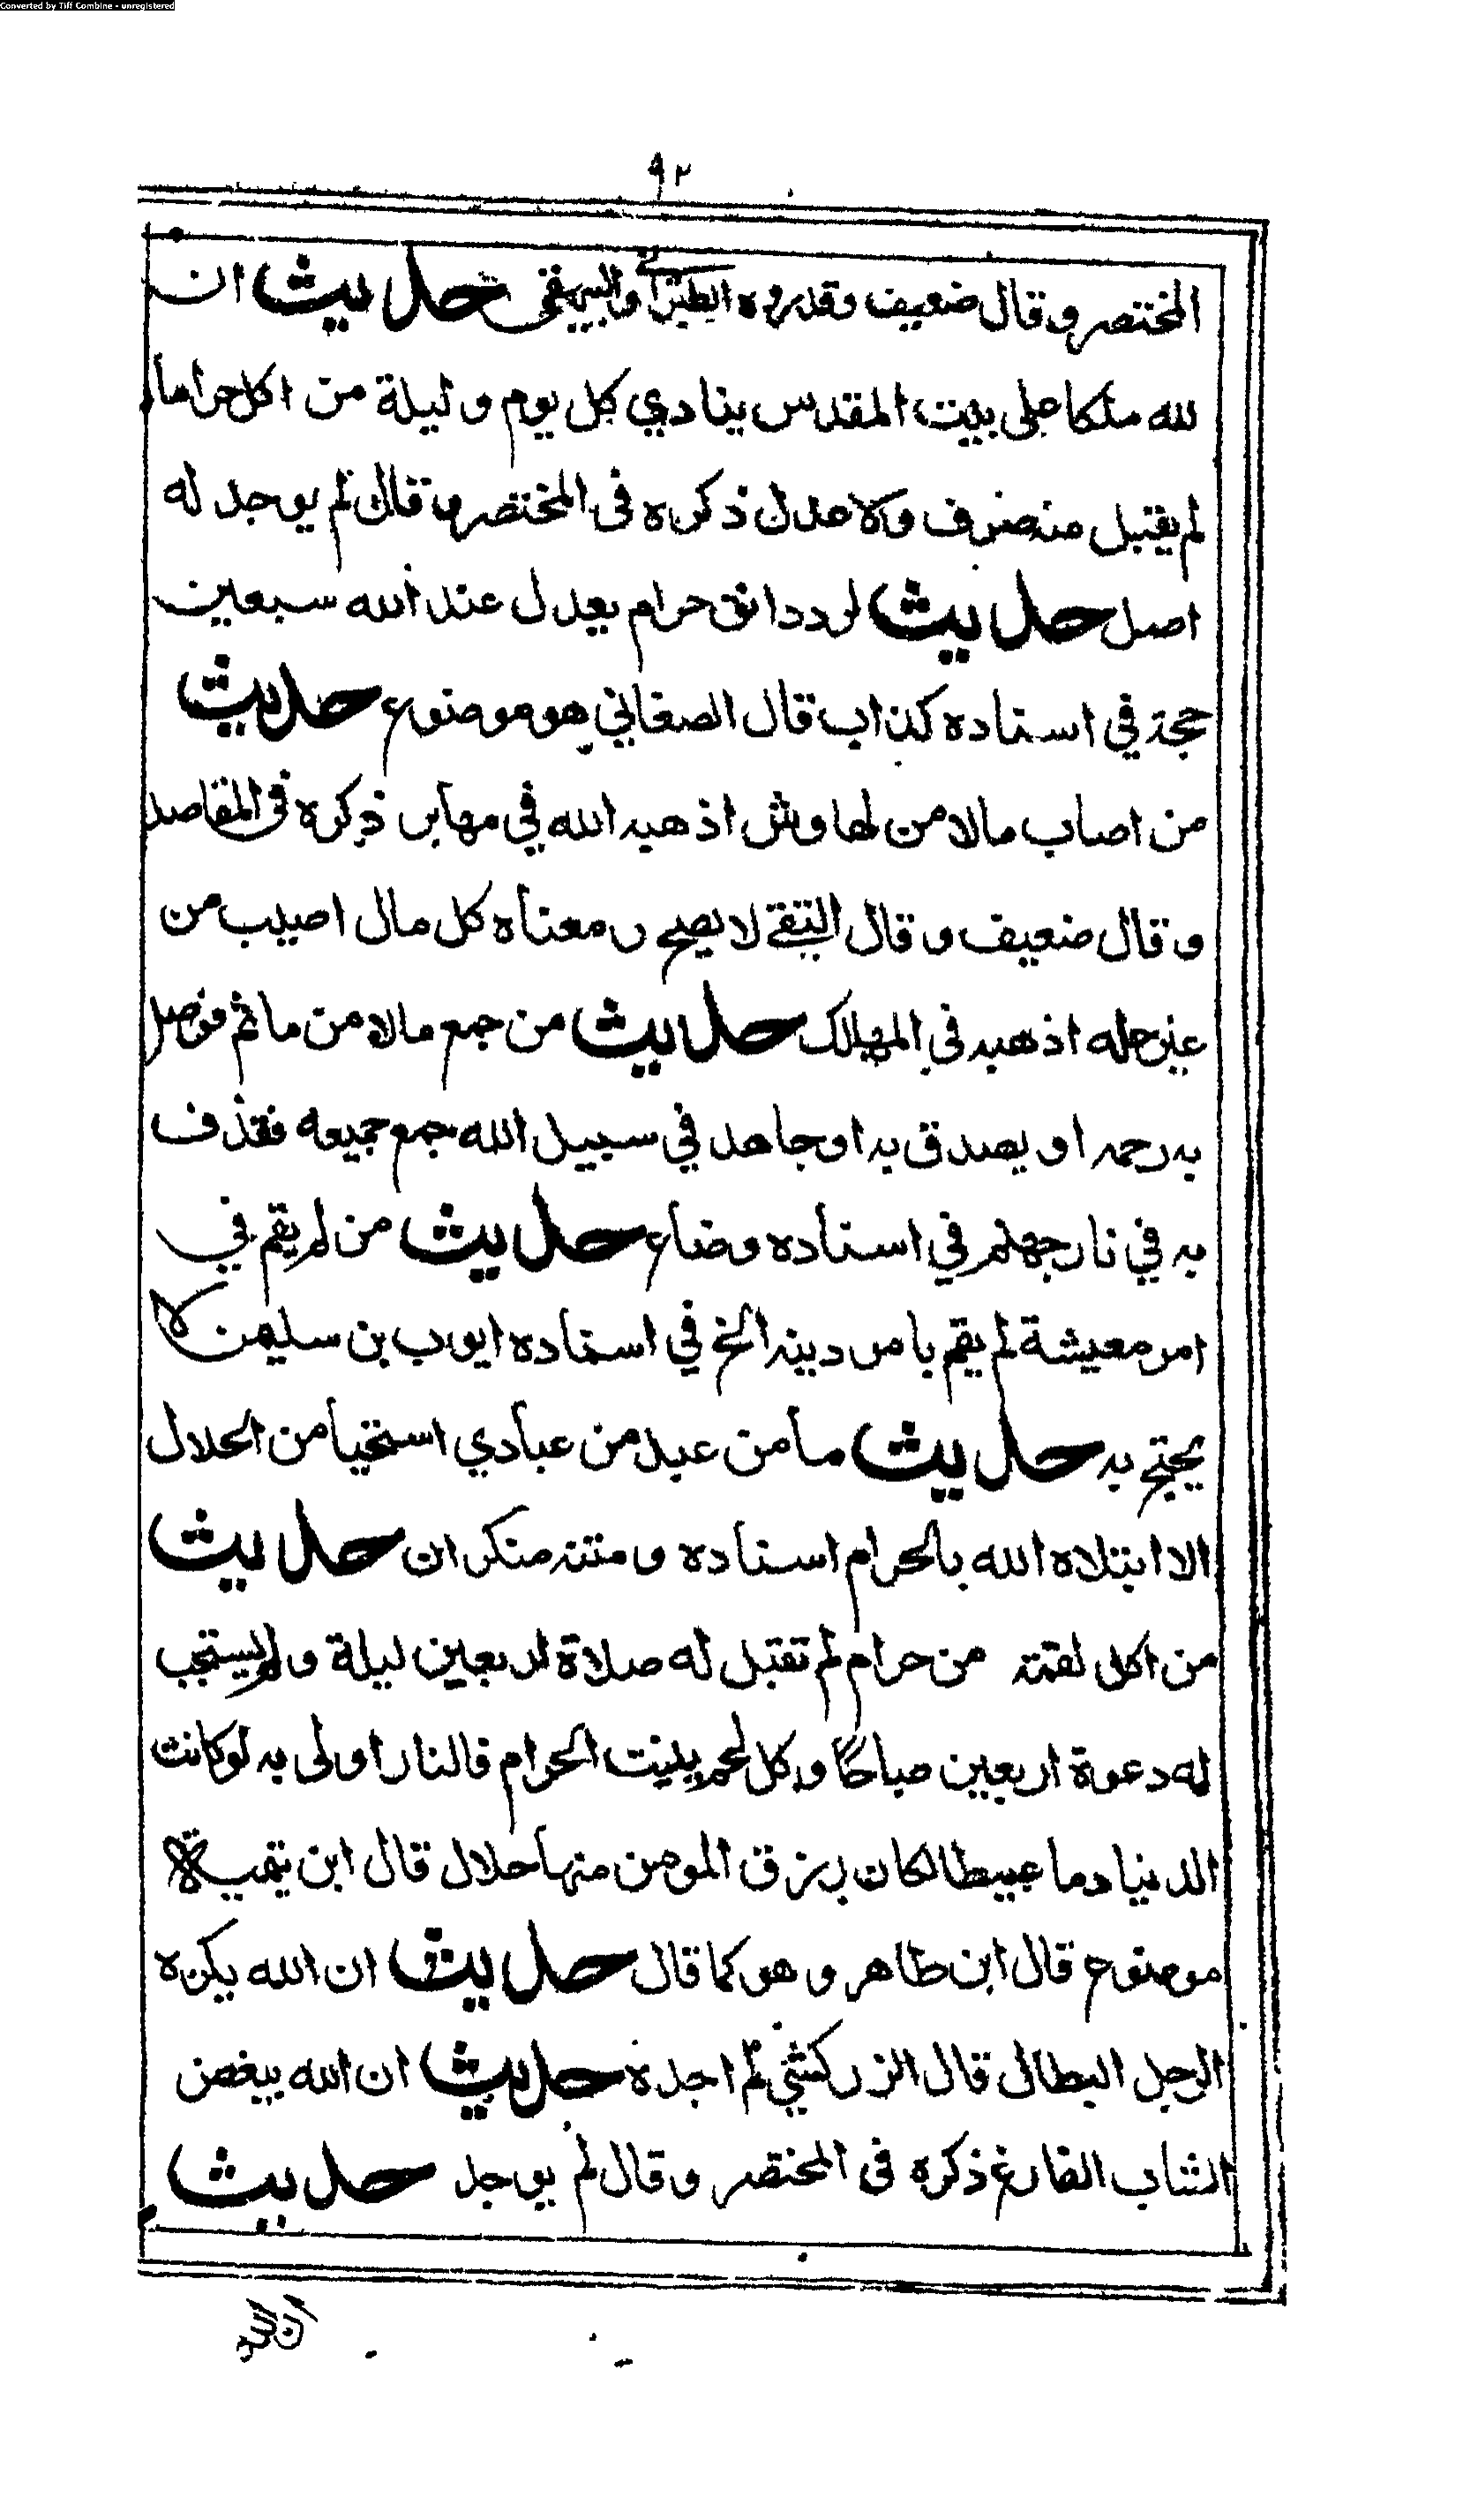 Converted by Tiff Combine - unregistered
٩٢
المختصر وقال ضعيف وقد روه الطبراني والبيهقى حديث ان
لله ملكا على بيت المقدس ينادي كل يوم وليلة من اكل حراما
لم يقبل منه صرف ولا عدل ذكره فى المختصر وقال لم يوجد له
اصل حديث لرد دانق حرام يعدل عند الله سبعين
حجة في اسناده كذاب قال الصغاني هو موضوع حديث
من اصاب مالا من لهاوش اذهبه الله في مهابر ذكره فى المقاصد
وقال ضعيف وقال التقي لا يصح ومعناه كل مال اصيب من
غير حله اذهبه في المهالك حديث من جمع مالا من ماثم فوصل
به رحمه او يصدق به او جاهد في سبيل الله جمع جميعه فقذف
به في نار جهنم في اسناده وضاع حديث من لم يقم في
امر معيشة لم يقم بامر دينه الخ في اسناده ايوب بن سليمن لا
يحتج به حديث ما من عبد من عبادي استحيا من الحلال
الا ابتلاه الله بالحرام اسناده ومتنه منكران حديث
من اكل لقمة من حرام لم تقبل له صلاة اربعين ليلة ولم يستجب
له دعوة اربعين صباحا وكل لحم ينبت الحرام فالنار اولى به لو كانت
الدنيا دما عبيطا لكان رزق المومن منها حلال قال ابن تيمية
موضوع قال ابن طاهر وهو كما قال حديث ان الله يكره
الرجل البطال قال الزركشي لم اجده حديث ان الله يبغض
الشاب الفارغ ذكره فى المختصر وقال لم يوجد حديث